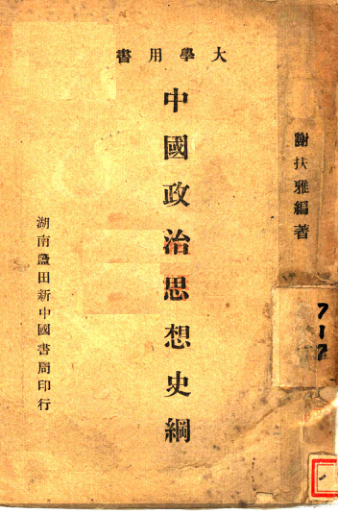 大學用書
謝扶雅編著
中國政治思想史綱
湖南藍田新中國書局印行
717